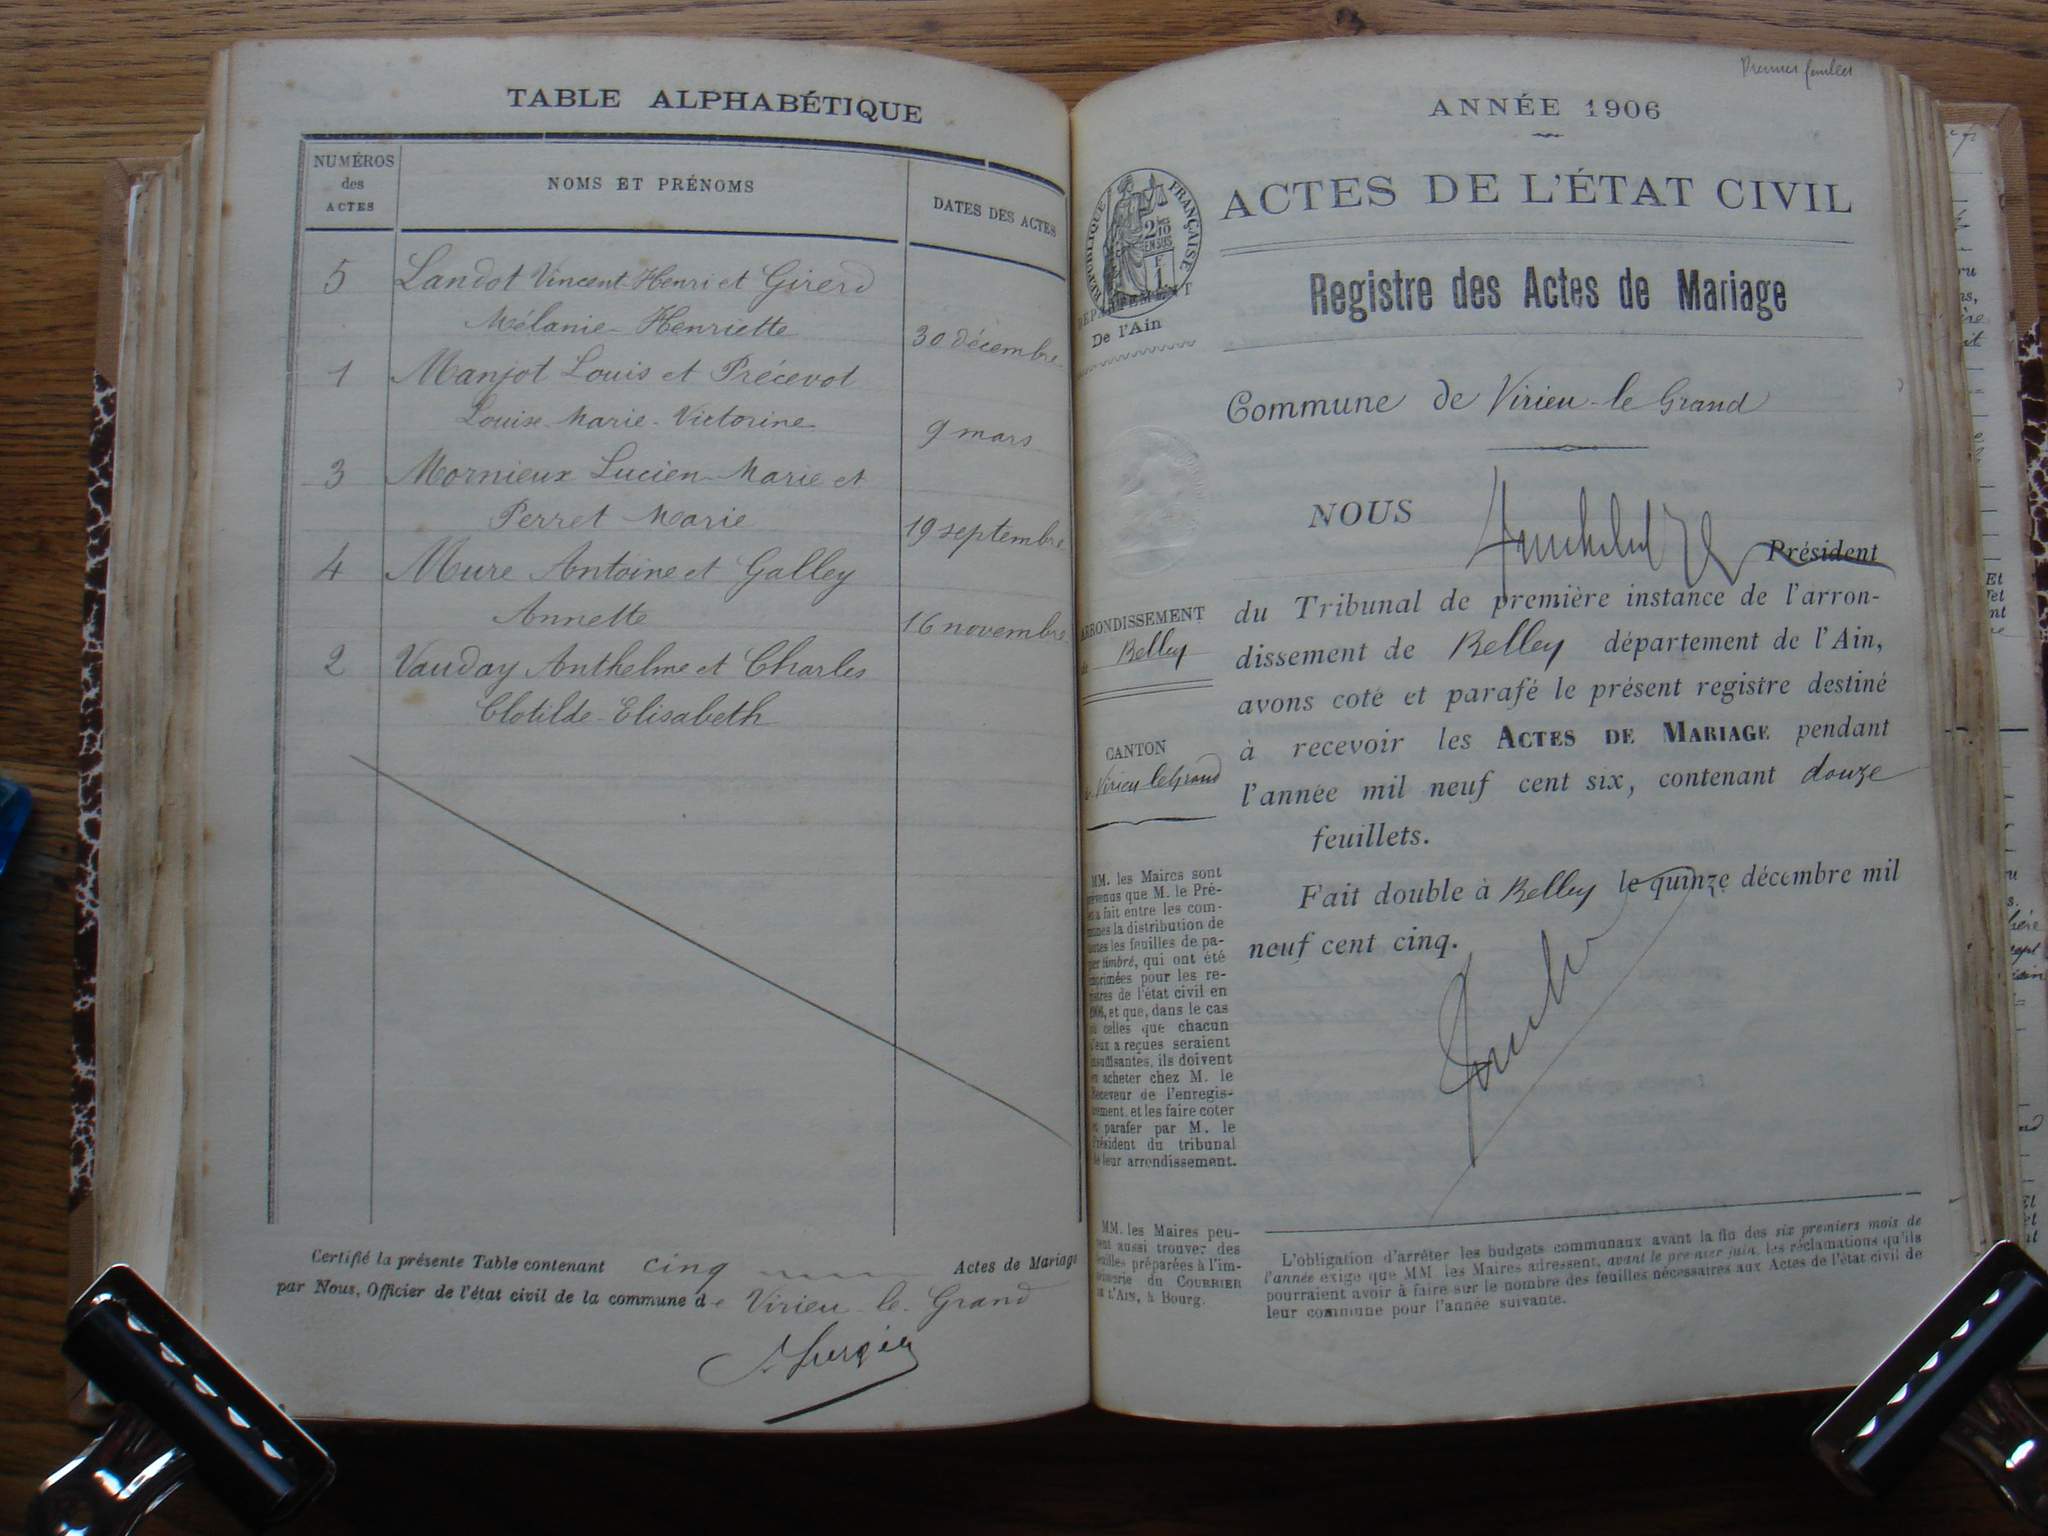 TABLE ALPHABÉTIQUE
NUMÉROS
des
ACTES
NOMS ET PRÉNOMS
DATES DES ACTES
5 Landot Vincent-Henri et Girerd
Mélanie-Henriette 30 décembre
1 Manjot Louis et Précevot
Louise-Marie-Victorine 9 mars
3 Mornieux Lucien-Marie et
Perret Marie 19 septembre
4 Mure Antoine et Galley
Annette 16 novembre
2 Vauday Anthelme et Charles
Clotilde-Elisabeth
Certifié la présente Table contenant cinq Actes de Mariage
par Nous, Officier de l'état civil de la commune de Virieu-le-Grand
Premier feuillet
ANNÉE 1906
ACTES DE L'ÉTAT CIVIL
RÉPUBLIQUE FRANÇAISE
2/10
EN SUS
F
1
DÉPARTEMENT
De l'Ain
Registre des Actes de Mariage
Commune de Virieu-le Grand
NOUS
Président
du Tribunal de première instance de l'arron-
dissement de Belley département de l'Ain,
avons coté et parafé le présent registre destiné
à recevoir les ACTES DE MARIAGE pendant
l'année mil neuf cent six, contenant douze
feuillets.
Fait double à Belley le quinze décembre mil
neuf cent cinq.
ARRONDISSEMENT
de Belley
CANTON
de Virieu-le Grand
MM. les Maires sont
prévenus que M. le Pré-
fet a fait entre les com-
munes la distribution de
toutes les feuilles de pa-
pier timbré, qui ont été
imprimées pour les re-
gistres de l'état civil en
1906, et que, dans le cas
où celles que chacun
d'eux a reçues seraient
insuffisantes, ils doivent
en acheter chez M. le
Receveur de l'enregis-
trement, et les faire coter
et parafer par M. le
Président du tribunal
de leur arrondissement.
MM. les Maires peu-
vent aussi trouver des
feuilles préparées à l'im-
primerie du COURRIER
DE L'AIN, à Bourg.
L'obligation d'arrêter les budgets communaux avant la fin des six premiers mois de
l'année exige que MM. les Maires adressent, avant le premier juin, les réclamations qu'ils
pourraient avoir à faire sur le nombre des feuilles nécessaires aux Actes de l'état civil de
leur commune pour l'année suivante.